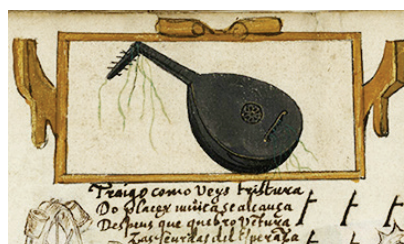 Traigo como veys tristura
Do plazer nu̅ca se alca̅ça
Despues que quebro V̅tura
Las cuerdas del Esperãça